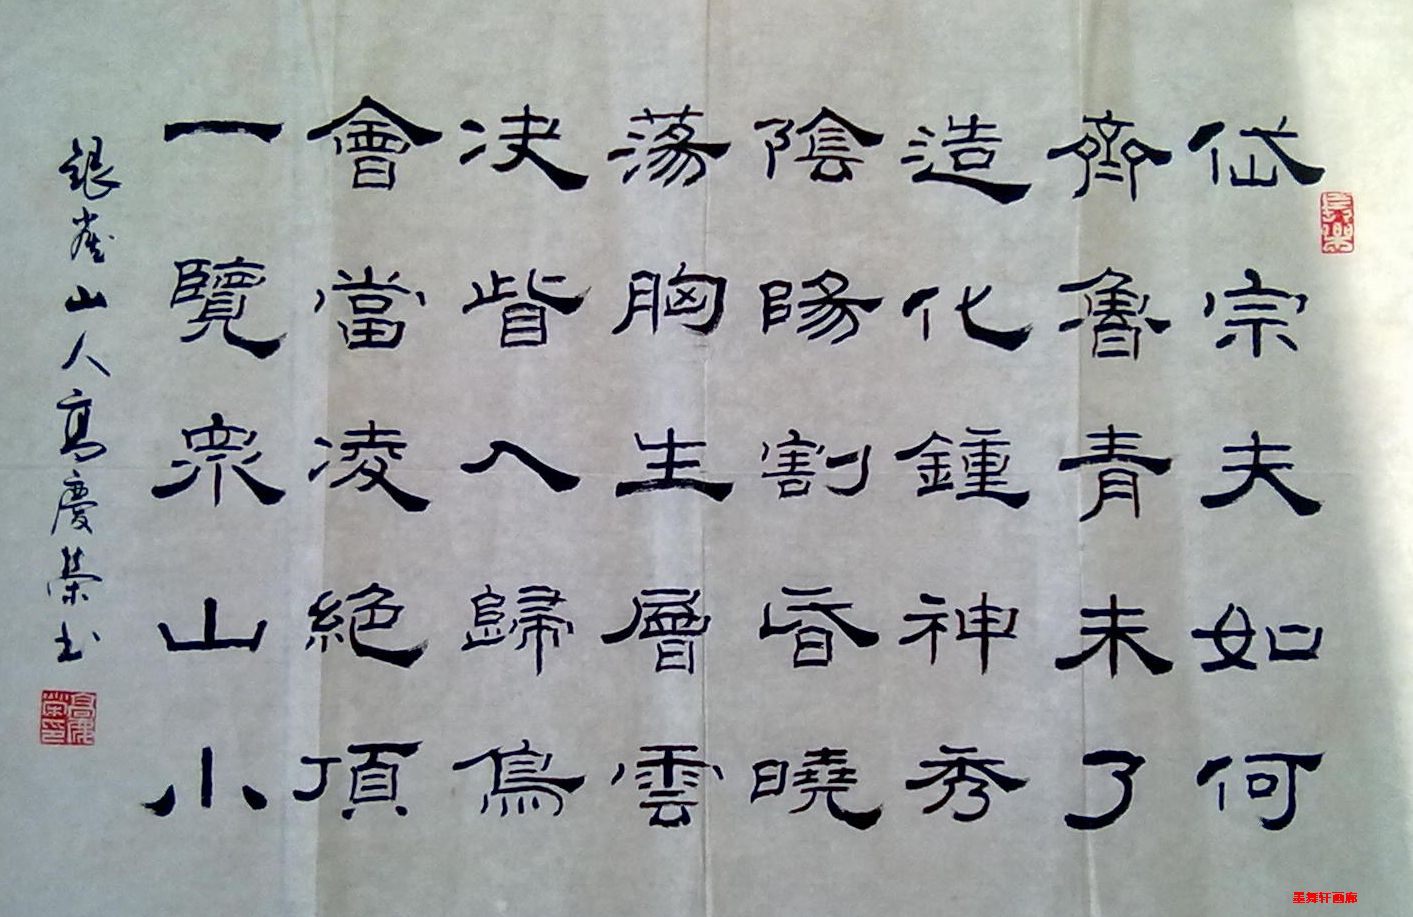 岱宗夫如何
齊魯青未了
造化鍾神秀
陰陽割昏曉
蕩胸生層雲
決眥入歸鳥
會當凌絕頂
一覽眾山小
銀雀山人高慶榮书
長樂
高慶榮印
墨舞轩画廊